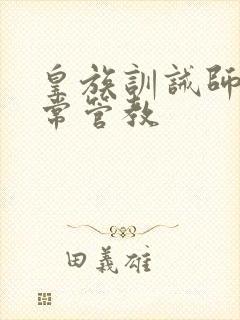 皇族訓誡師
常管教
田義雄